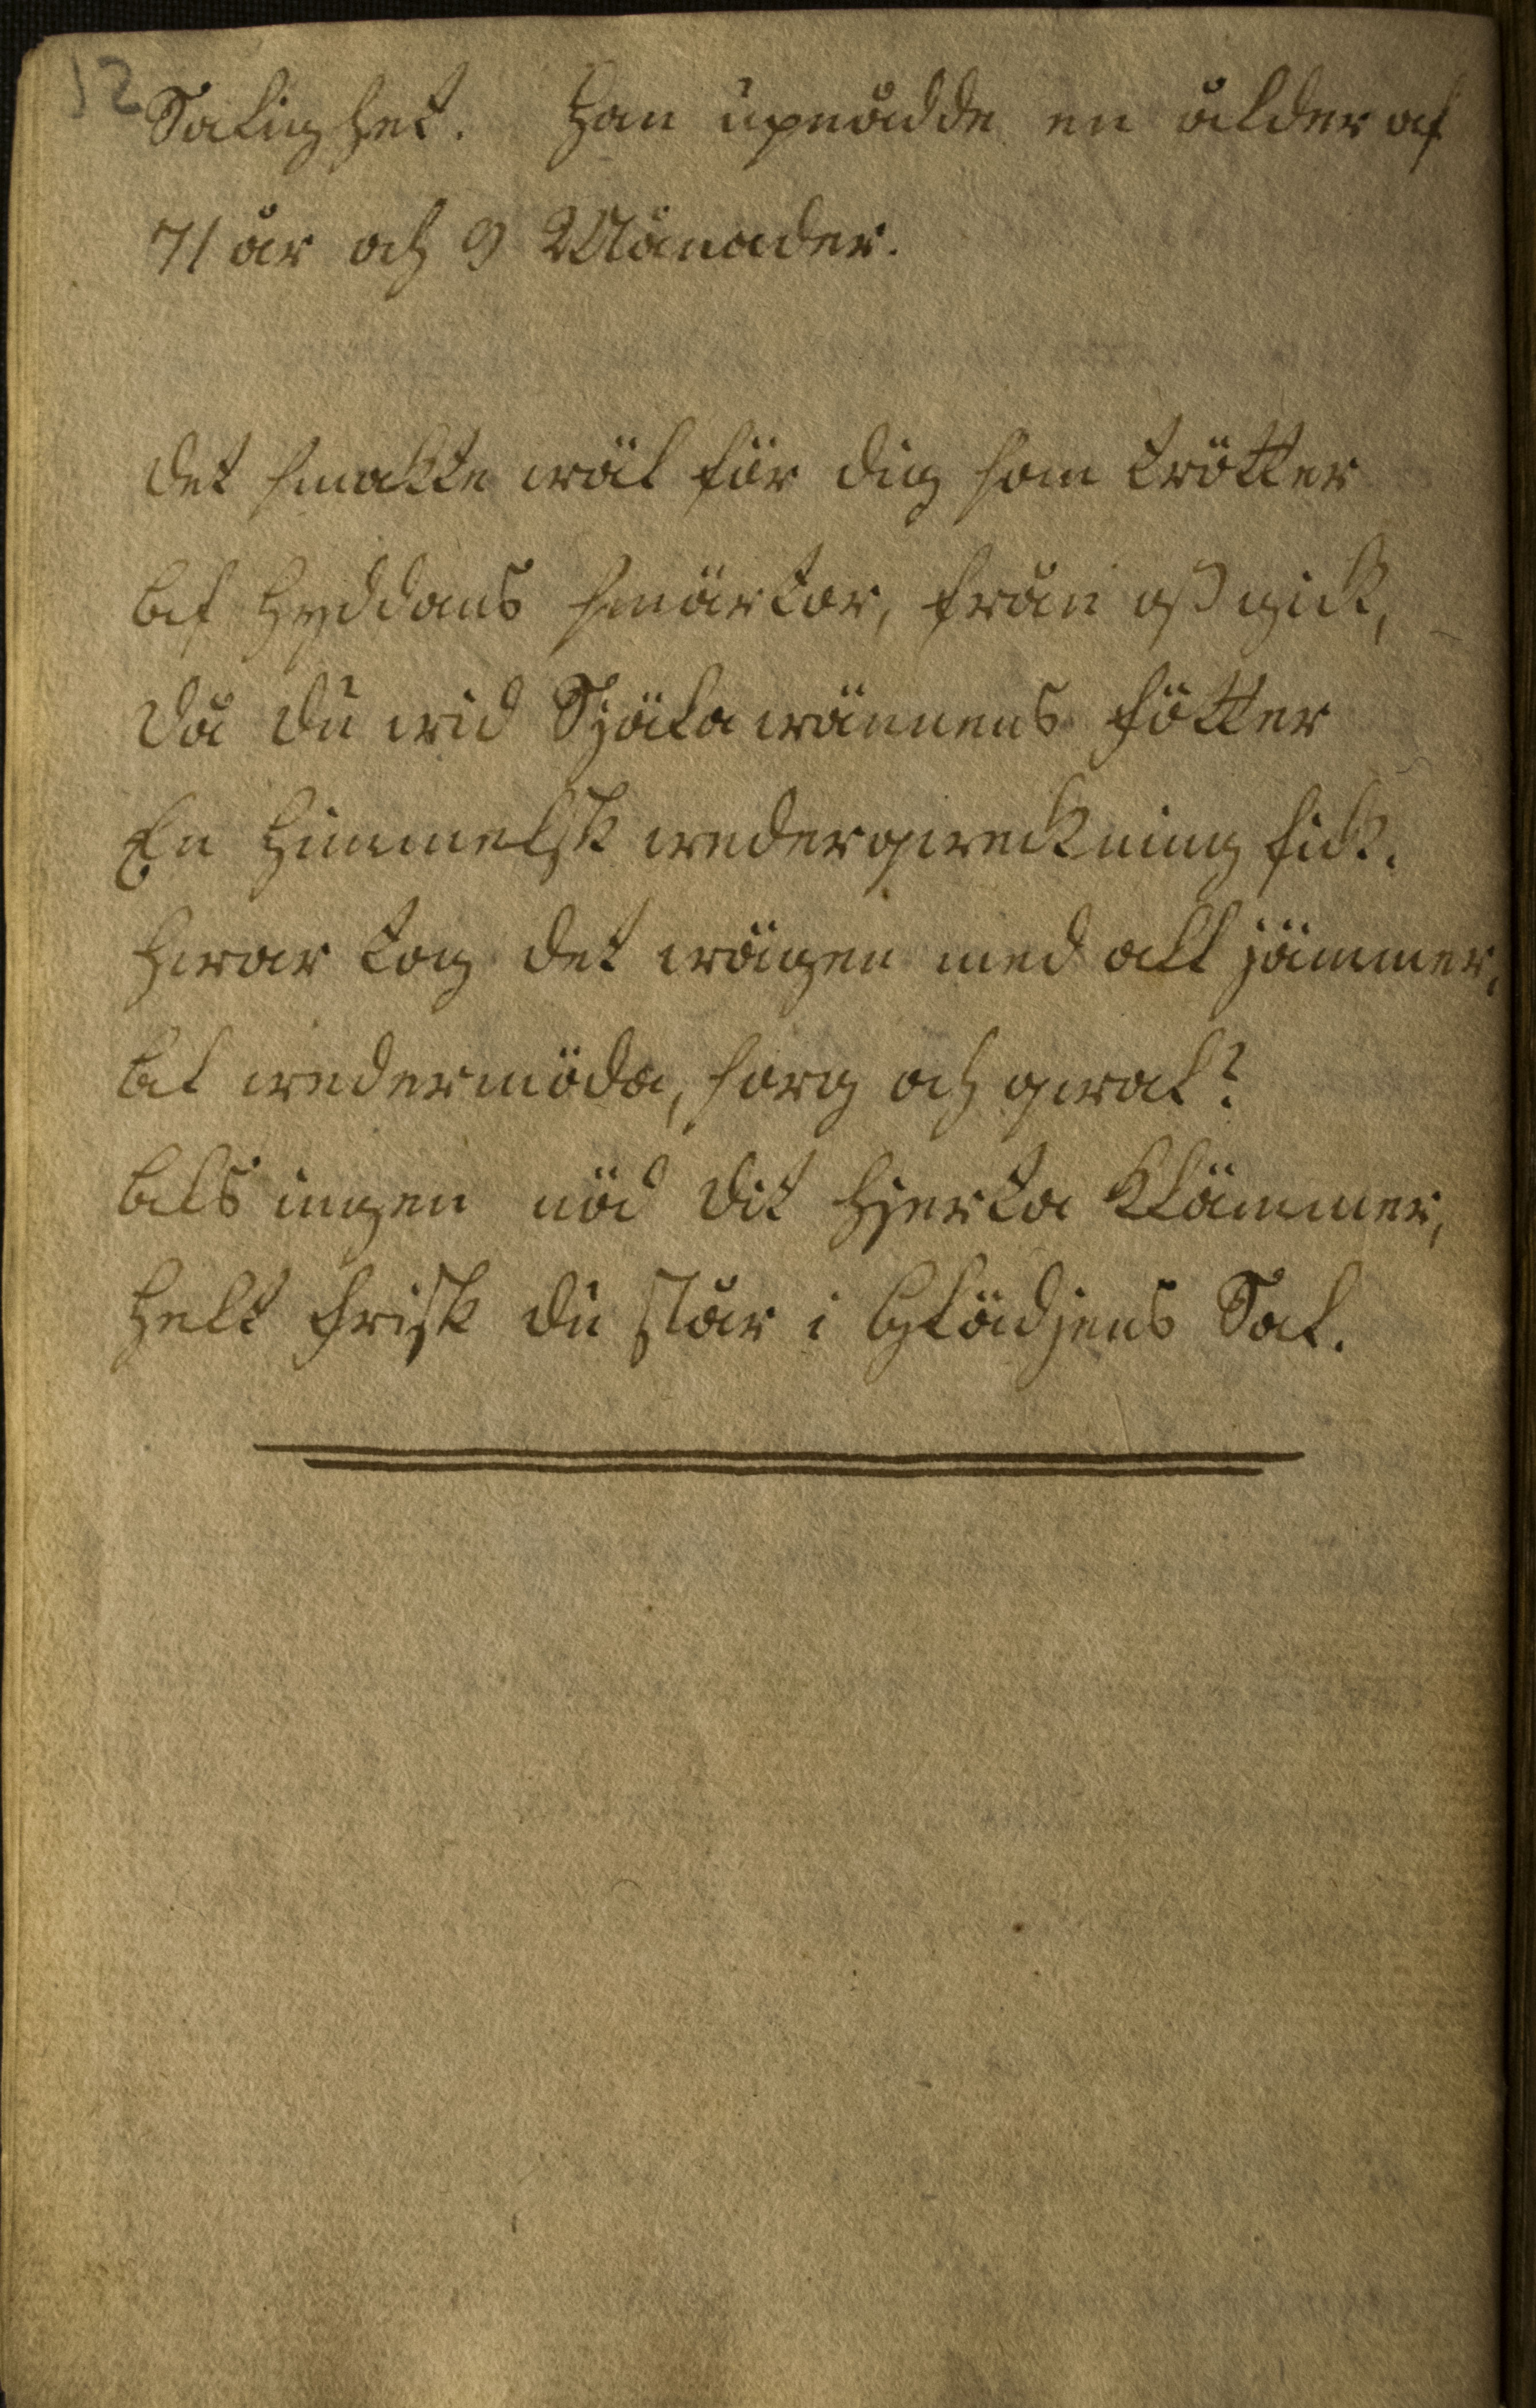 12
Salighet. Han upnådde en ålder af
71 år och 9 Månader.
Det smakte wäl för dig som trötter
Af Hyddans smärtor, från oß gick,
Då du wid Sjöla wännens fötter
En Himmelsk wederqweckning fick.
Hwar tog det wägen med all jämmer,
All wedermöda, sorg och qwal?
Als ingen nöd dit Hjerta klämmer,
Helt frisk du står i Glädjens Sal.